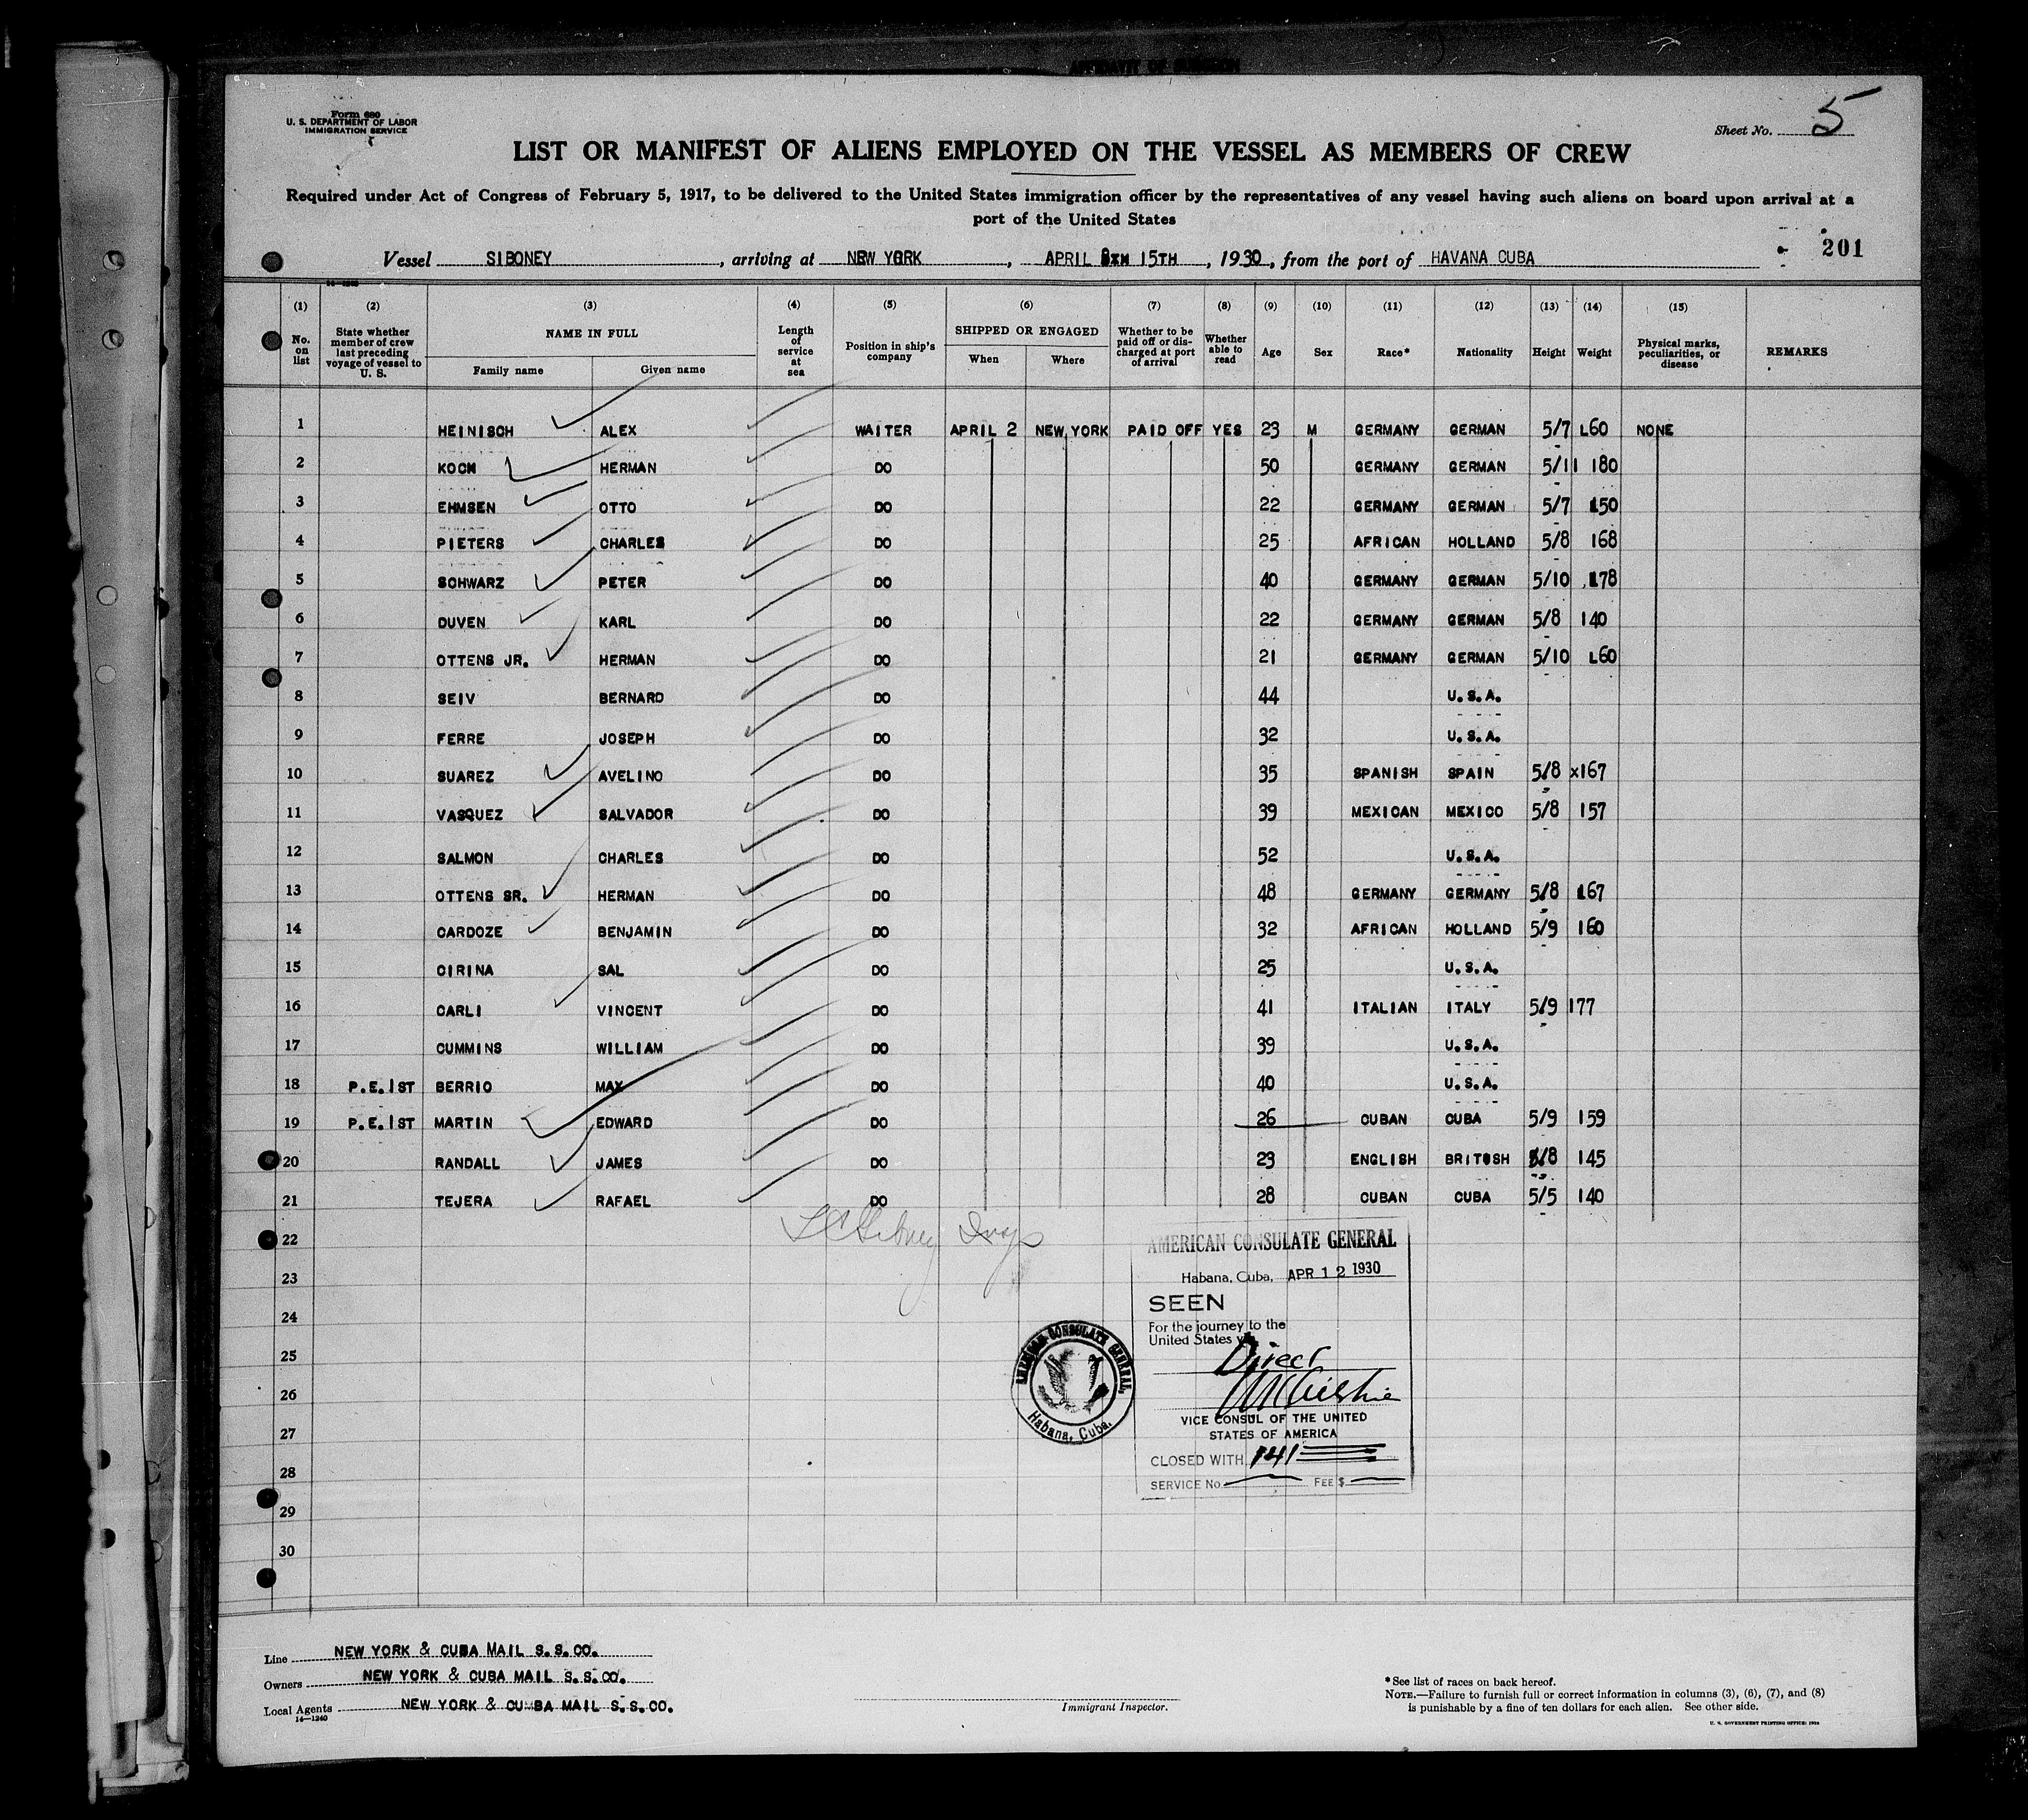 Form 680
U. S. DEPARTMENT OF LABOR
IMMIGRATION SERVICE
Sheet No. 5
LIST OR MANIFEST OF ALIENS EMPLOYED ON THE VESSEL AS MEMBERS OF CREW
Required under Act of Congress of February 5, 1917, to be delivered to the United States immigration officer by the representatives of any vessel having such aliens on board upon arrival at a
port of the United States
Vessel SIBONEY, arriving at NEW YORK, APRIL 15TH, 1930, from the port of HAVANA CUBA
201
(1) (2) (3) (4) (5) (6) (7) (8) (9) (10) (11) (12) (13) (14) (15)
No. on list State whether member of crew last preceding voyage of vessel to U. S. NAME IN FULL Family name Given name Length of service at sea Position in ship's company SHIPPED OR ENGAGED When Where Whether to be paid off or discharged at port of arrival Whether able to read Age Sex Race* Nationality Height Weight Physical marks, peculiarities, or disease REMARKS
1 HEINISCH ALEX WAITER APRIL 2 NEW YORK PAID OFF YES 23 M GERMANY GERMAN 5/7 L60 NONE
2 KOCH HERMAN DO 50 GERMANY GERMAN 5/11 180
3 EHMSEN OTTO DO 22 GERMANY GERMAN 5/7 150
4 PIETERS CHARLES DO 25 AFRICAN HOLLAND 5/8 168
5 SCHWARZ PETER DO 40 GERMANY GERMAN 5/10 178
6 DUVEN KARL DO 22 GERMANY GERMAN 5/8 140
7 OTTENS JR. HERMAN DO 21 GERMANY GERMAN 5/10 L60
8 SEIV BERNARD DO 44 U.S.A.
9 FERRE JOSEPH DO 32 U.S.A.
10 SUAREZ AVELINO DO 35 SPANISH SPAIN 5/8 x167
11 VASQUEZ SALVADOR DO 39 MEXICAN MEXICO 5/8 157
12 SALMON CHARLES DO 52 U.S.A.
13 OTTENS SR. HERMAN DO 48 GERMANY GERMANY 5/8 167
14 CARDOZE BENJAMIN DO 32 AFRICAN HOLLAND 5/9 160
15 CIRINA SAL DO 25 U.S.A.
16 CARLI VINCENT DO 41 ITALIAN ITALY 5/9 177
17 CUMMINS WILLIAM DO 39 U.S.A.
18 P.E.1ST BERRIO MAX DO 40 U.S.A.
19 P.E.1ST MARTIN EDWARD DO 26 CUBAN CUBA 5/9 159
20 RANDALL JAMES DO 23 ENGLISH BRITISH 5/8 145
21 TEJERA RAFAEL DO 28 CUBAN CUBA 5/5 140
22
23
24
25
26
27
28
29
30
AMERICAN CONSULATE GENERAL
Habana, Cuba, APR 12 1930
SEEN
For the journey to the
United States
Direct
VICE CONSUL OF THE UNITED
STATES OF AMERICA
CLOSED WITH 141
SERVICE No. FEE $
AMERICAN CONSULATE GENERAL,
Habana, Cuba.
Line NEW YORK & CUBA MAIL S.S.CO.
Owners NEW YORK & CUBA MAIL S.S.CO.
Local Agents NEW YORK & CUMBA MAIL S.S.CO.
14—1240
Immigrant Inspector.
*See list of races on back hereof.
NOTE.—Failure to furnish full or correct information in columns (3), (6), (7), and (8)
is punishable by a fine of ten dollars for each alien. See other side.